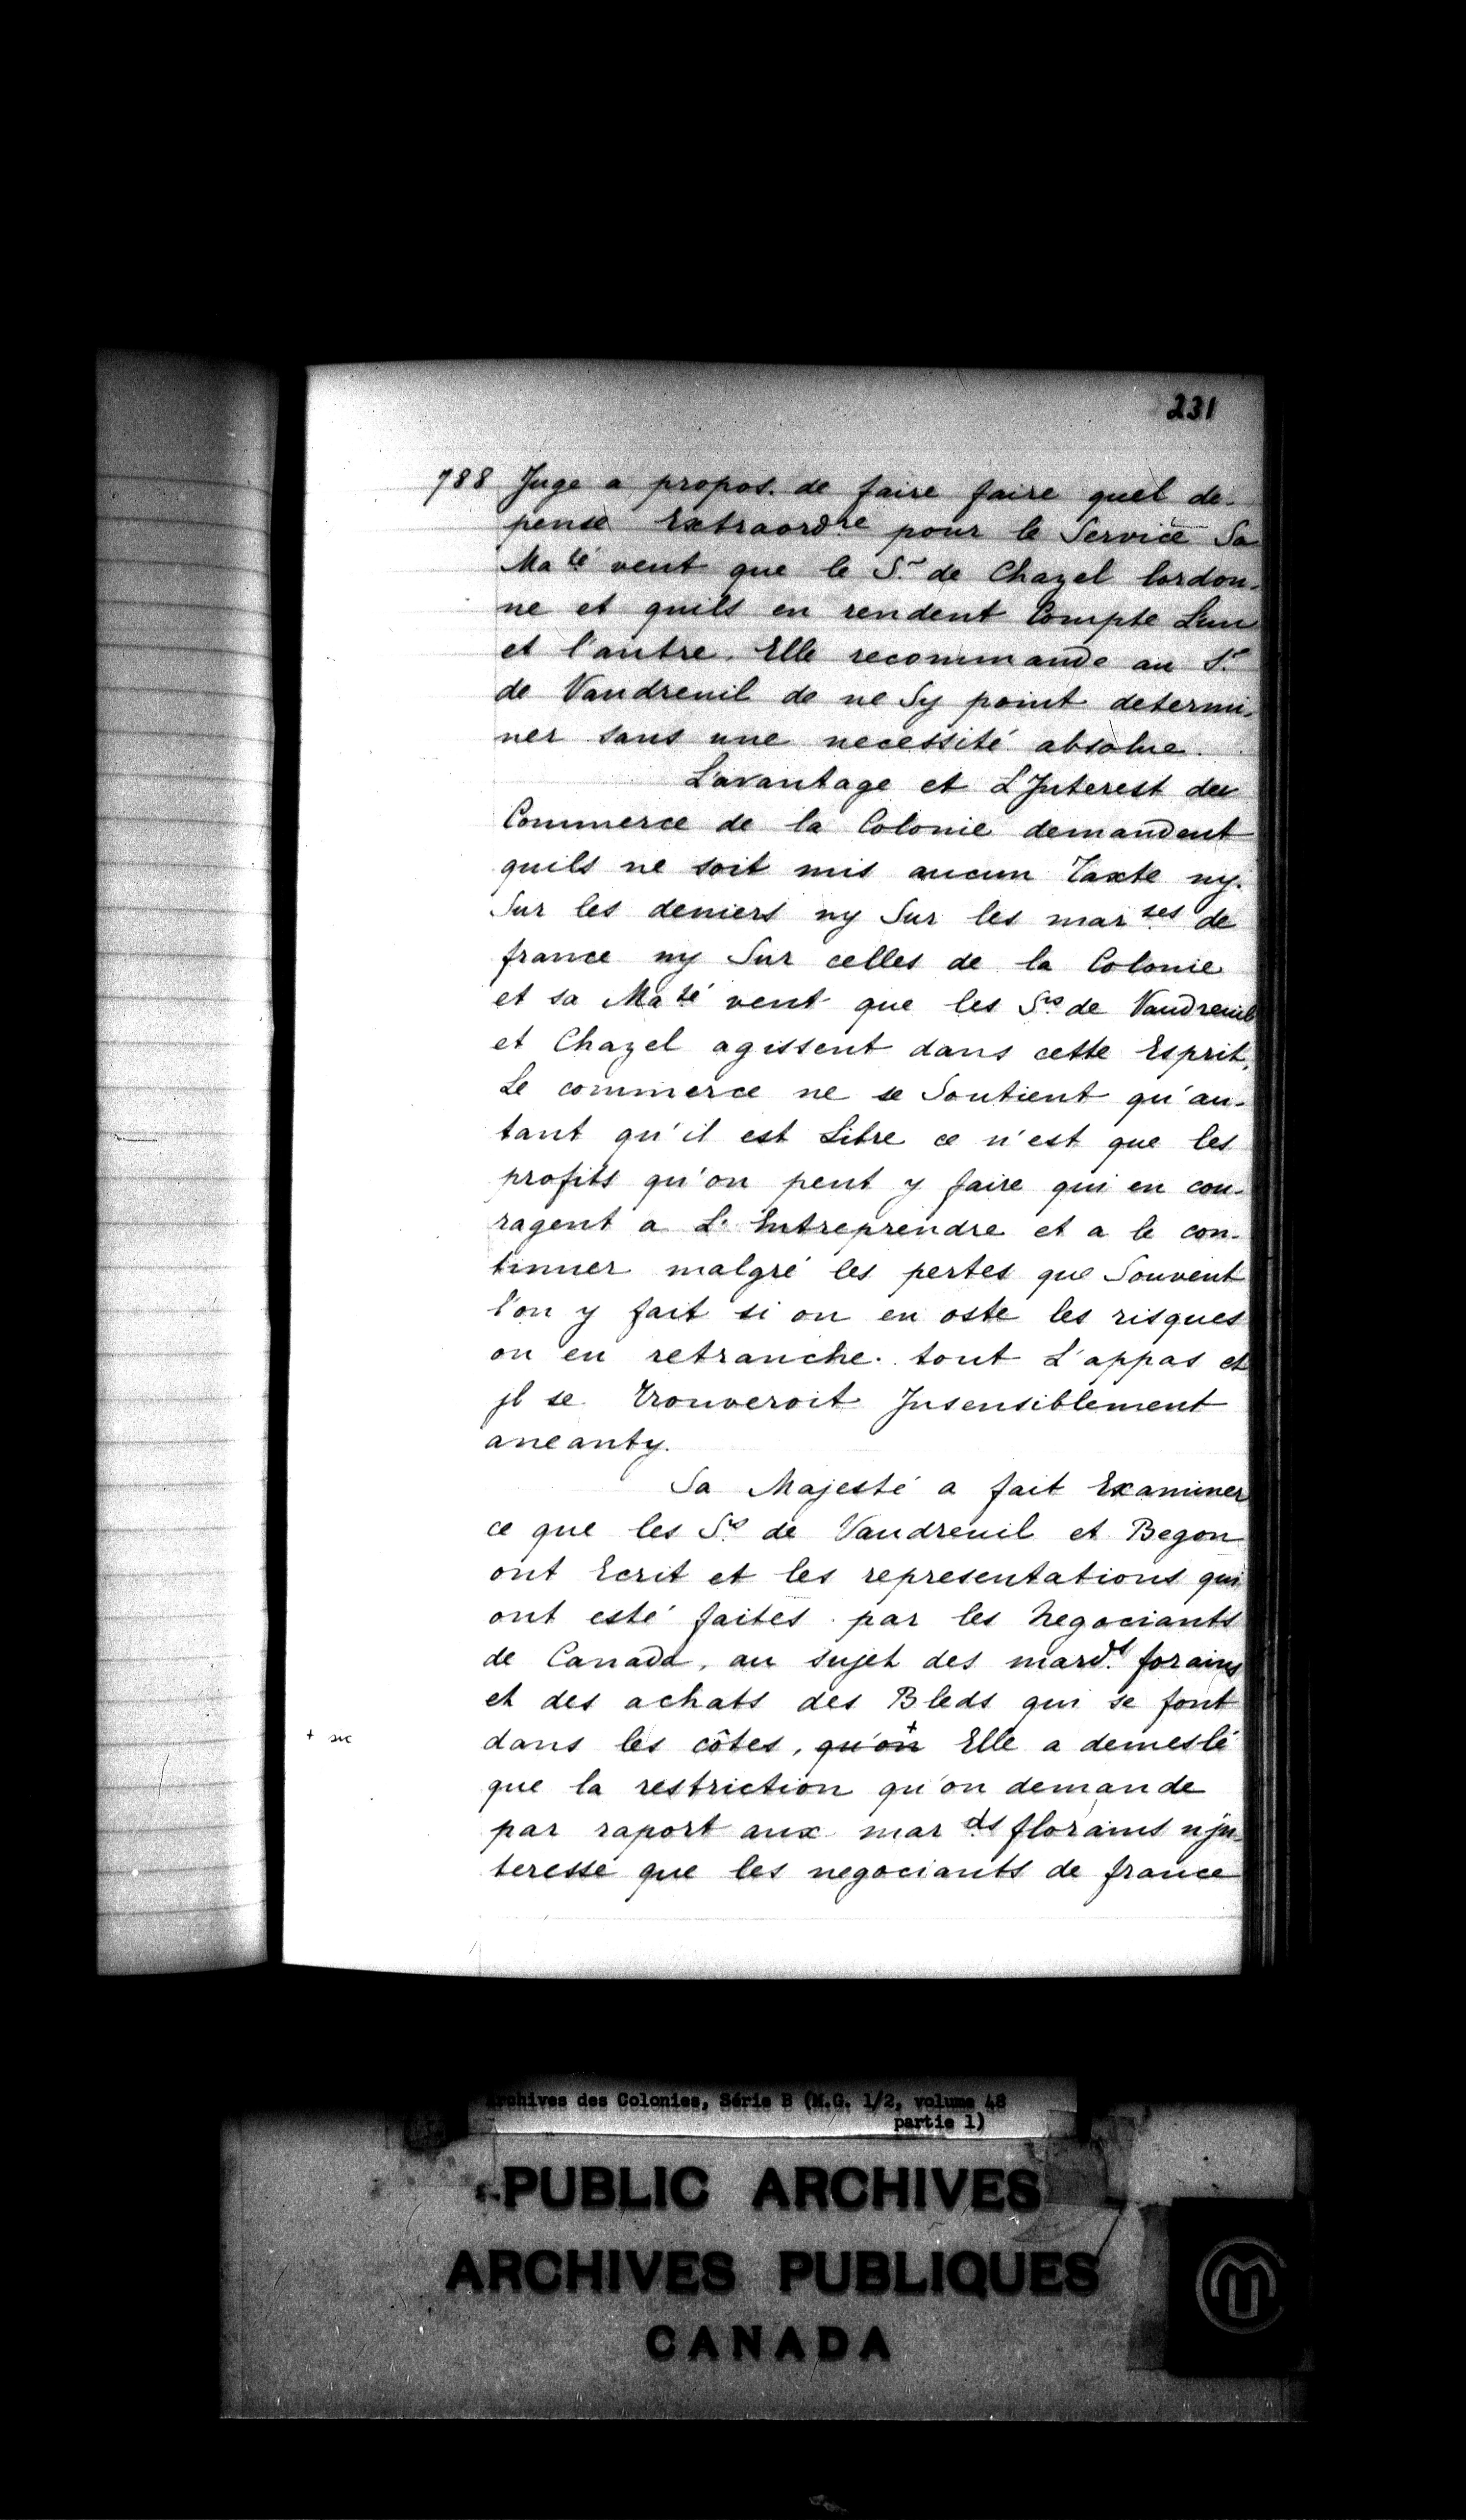 231
788 Juge a propos. de faire faire quel de-
pense Extraordre pour le Service Sa
Maté veut que le Sr de Chazel lordon-
ne et quils en rendent Compte L'un
et l'autre. Elle recommande au Sr
de Vaudreuil de ne Sy point determi-
ner sans une necessité absolue.
L'avantage et L'Interest du
Commerce de la Colonie demandent
quils ne soit mis aucun Taxte ny.
Sur les deniers ny Sur les marses de
france ny Sur celles de la Colonie
et sa Maté veut que les Srs de Vaudreuil
et Chazel agissent dans cette Esprit,
Le commerce ne se Soutient qu'au-
tant qu'il est Libre ce n'est que les
profits qu'on peut y faire qui en cou-
ragent a L'Entreprendre et a le con-
tinuer malgré les pertes que Souvent
l'on y fait si on en oste les risques
on en retranche. tout L'appas et
jl se Trouveroit Jnsensiblement
aneanty.
Sa Majesté a fait Examiner
ce que les Srs de Vaudreuil et Begon
ont Ecrit et les representations qui
ont esté faites par les Negociants
de Canada, au sujet des mards forains
et des achats des Bleds qui se font
+ sic dans les côtes, qu'on + Elle a demeslé
que la restriction qu'on demande
par raport aux mards florains n'jn-
teresse que les negociants de france
Archives des Colonies, Série B (M.G. 1/2, volume 48
partie 1)
PUBLIC ARCHIVES
ARCHIVES PUBLIQUES
CANADA